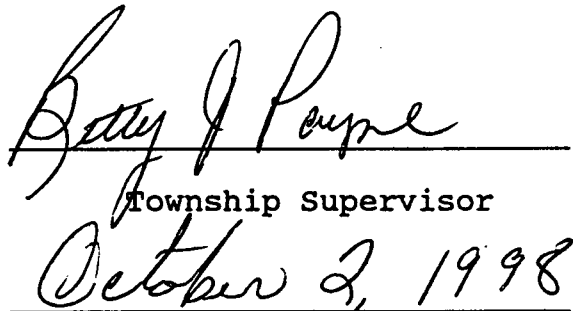 Betty J Payne
Township Supervisor
October 2, 1998